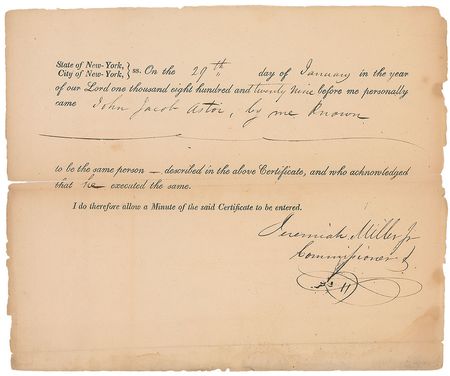 State of New-York, } ss. On the 29th day of January in the year
City of New-York,
of our Lord one thousand eight hundred and twenty Nine before me personally
came John Jacob Astor, by me known
to be the same person — described in the above Certificate, and who acknowledged
that he executed the same.
I do therefore allow a Minute of the said Certificate to be entered.
Jeremiah Miller Jr
Commissioner &